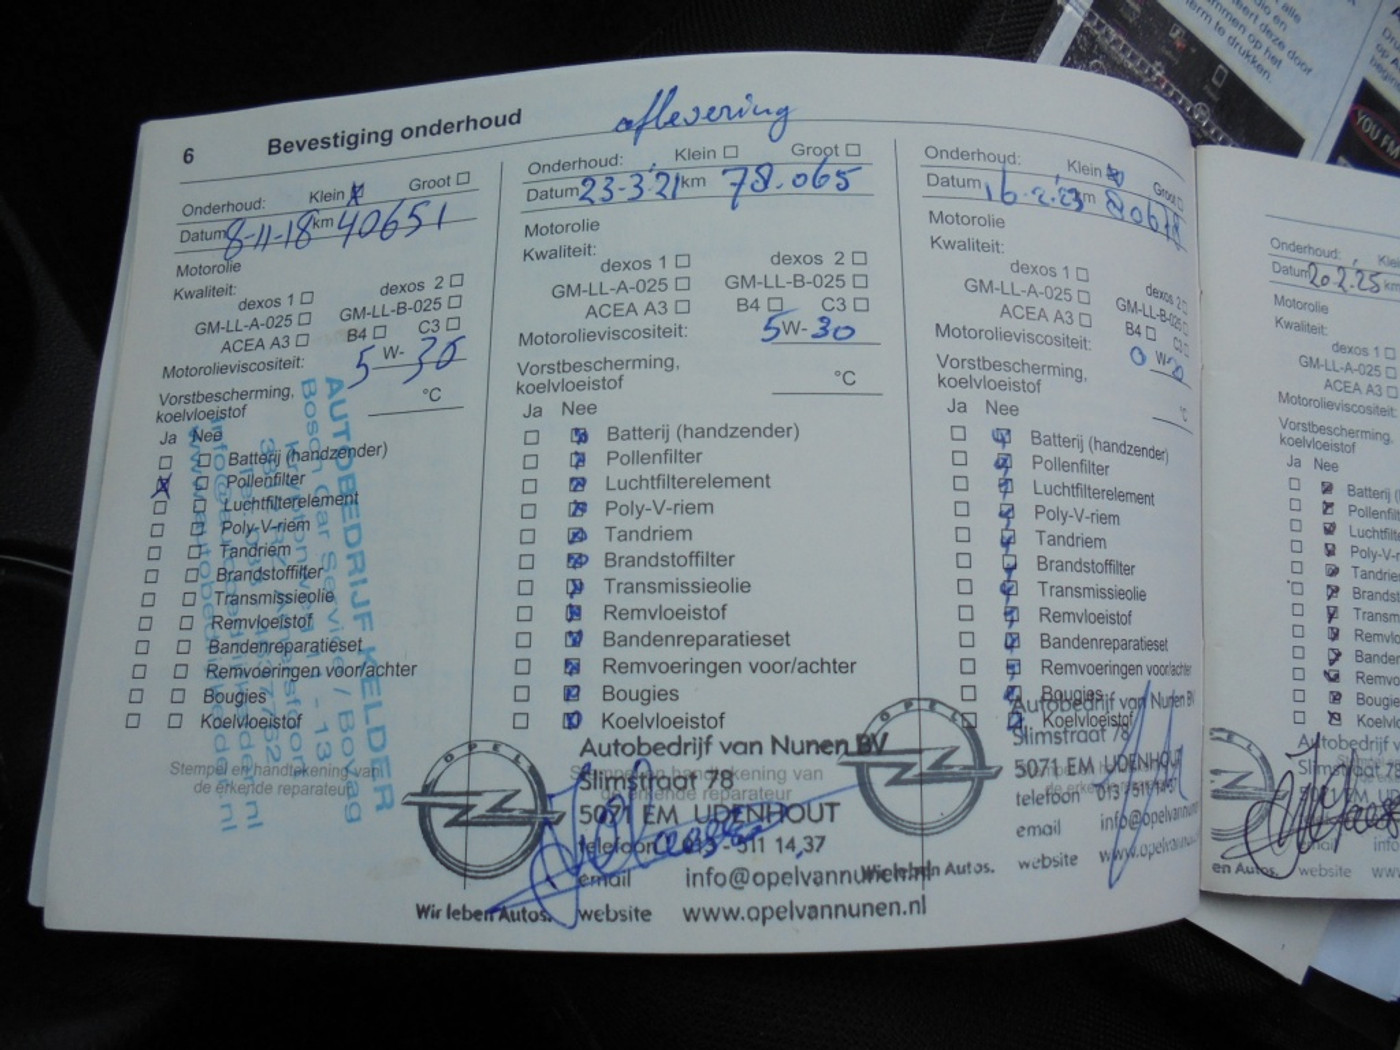 6 Bevestiging onderhoud
aflevering
Onderhoud: Klein Groot
Datum 8-11-18 km 40651
Motorolie
Kwaliteit:
dexos 1 dexos 2
GM-LL-A-025 GM-LL-B-025
ACEA A3 B4 C3
Motorolieviscositeit: 5 W- 30
Vorstbescherming,
koelvloeistof °C
Ja Nee
Batterij (handzender)
Pollenfilter
Luchtfilterelement
Poly-V-riem
Tandriem
Brandstoffilter
Transmissieolie
Remvloeistof
Bandenreparatieset
Remvoeringen voor/achter
Bougies
Koelvloeistof
Stempel en handtekening van
de erkende reparateur
AUTOBEDRIJF KELDER
Bosch Car Service / Bovag
Onderhoud: Klein Groot
Datum 23-3-21 km 78.065
Motorolie
Kwaliteit:
dexos 1 dexos 2
GM-LL-A-025 GM-LL-B-025
ACEA A3 B4 C3
Motorolieviscositeit: 5 W- 30
Vorstbescherming,
koelvloeistof °C
Ja Nee
Batterij (handzender)
Pollenfilter
Luchtfilterelement
Poly-V-riem
Tandriem
Brandstoffilter
Transmissieolie
Remvloeistof
Bandenreparatieset
Remvoeringen voor/achter
Bougies
Koelvloeistof
Stempel en handtekening van
de erkende reparateur
OPEL
Autobedrijf van Nunen BV
Slimstraat 78
5071 EM UDENHOUT
telefoon 013 - 511 14 37
email info@opelvannunen.nl
Wir leben Autos. website www.opelvannunen.nl
Onderhoud: Klein Groot
Datum 16-2-23 km
Motorolie
Kwaliteit:
dexos 1 dexos 2
GM-LL-A-025 GM-LL-B-025
ACEA A3 B4 C3
Motorolieviscositeit: 0 W-20
Vorstbescherming,
koelvloeistof °C
Ja Nee
Batterij (handzender)
Pollenfilter
Luchtfilterelement
Poly-V-riem
Tandriem
Brandstoffilter
Transmissieolie
Remvloeistof
Bandenreparatieset
Remvoeringen voor/achter
Bougies
Koelvloeistof
OPEL
Autobedrijf van Nunen BV
Slimstraat 78
5071 EM UDENHOUT
telefoon 013 511 14 37
email info@opelvannun
Wir leben Autos. website www.opelvannun
Onderhoud: Klei
Datum 20-2-25 km
Motorolie
Kwaliteit:
dexos 1
GM-LL-A-025
ACEA A3
Motorolieviscositeit:
Vorstbescherming,
koelvloeistof
Ja Nee
Batterij (
Pollenfil
Luchtfilt
Poly-V-r
Tandrie
Brandst
Transm
Remvlo
Banden
Remvo
Bougie
Koelv
Autobedrijf v
Slimstraat 78
en Autos. website
YOU FM